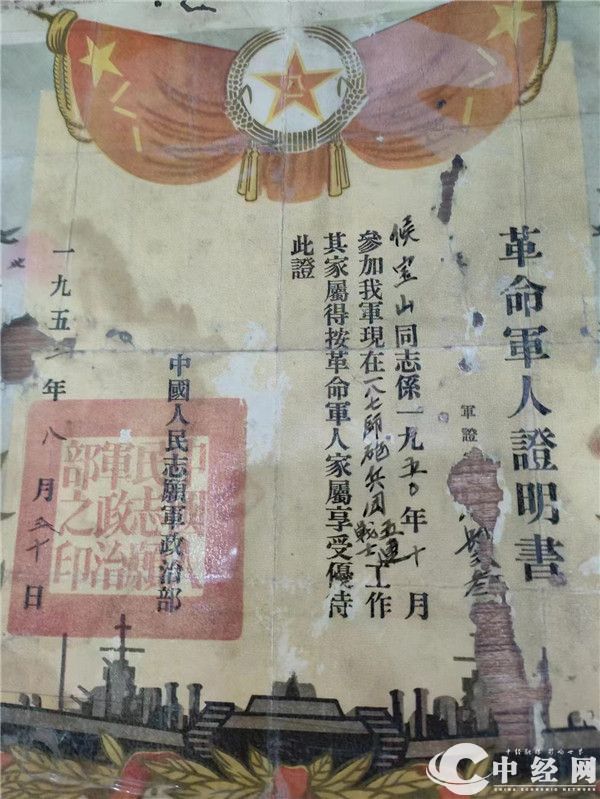 革命軍人證明書
軍證
候宝山同志係一九五〇年十月
參加我軍現在一八七師砲兵团五連战士工作
其家屬得按革命軍人家屬享受優待
此證
中國人民志願軍政治部
一九五二年八月三十日
中國人民志願軍政治部之印
中经网
CHINA ECONOMIC NETWORK